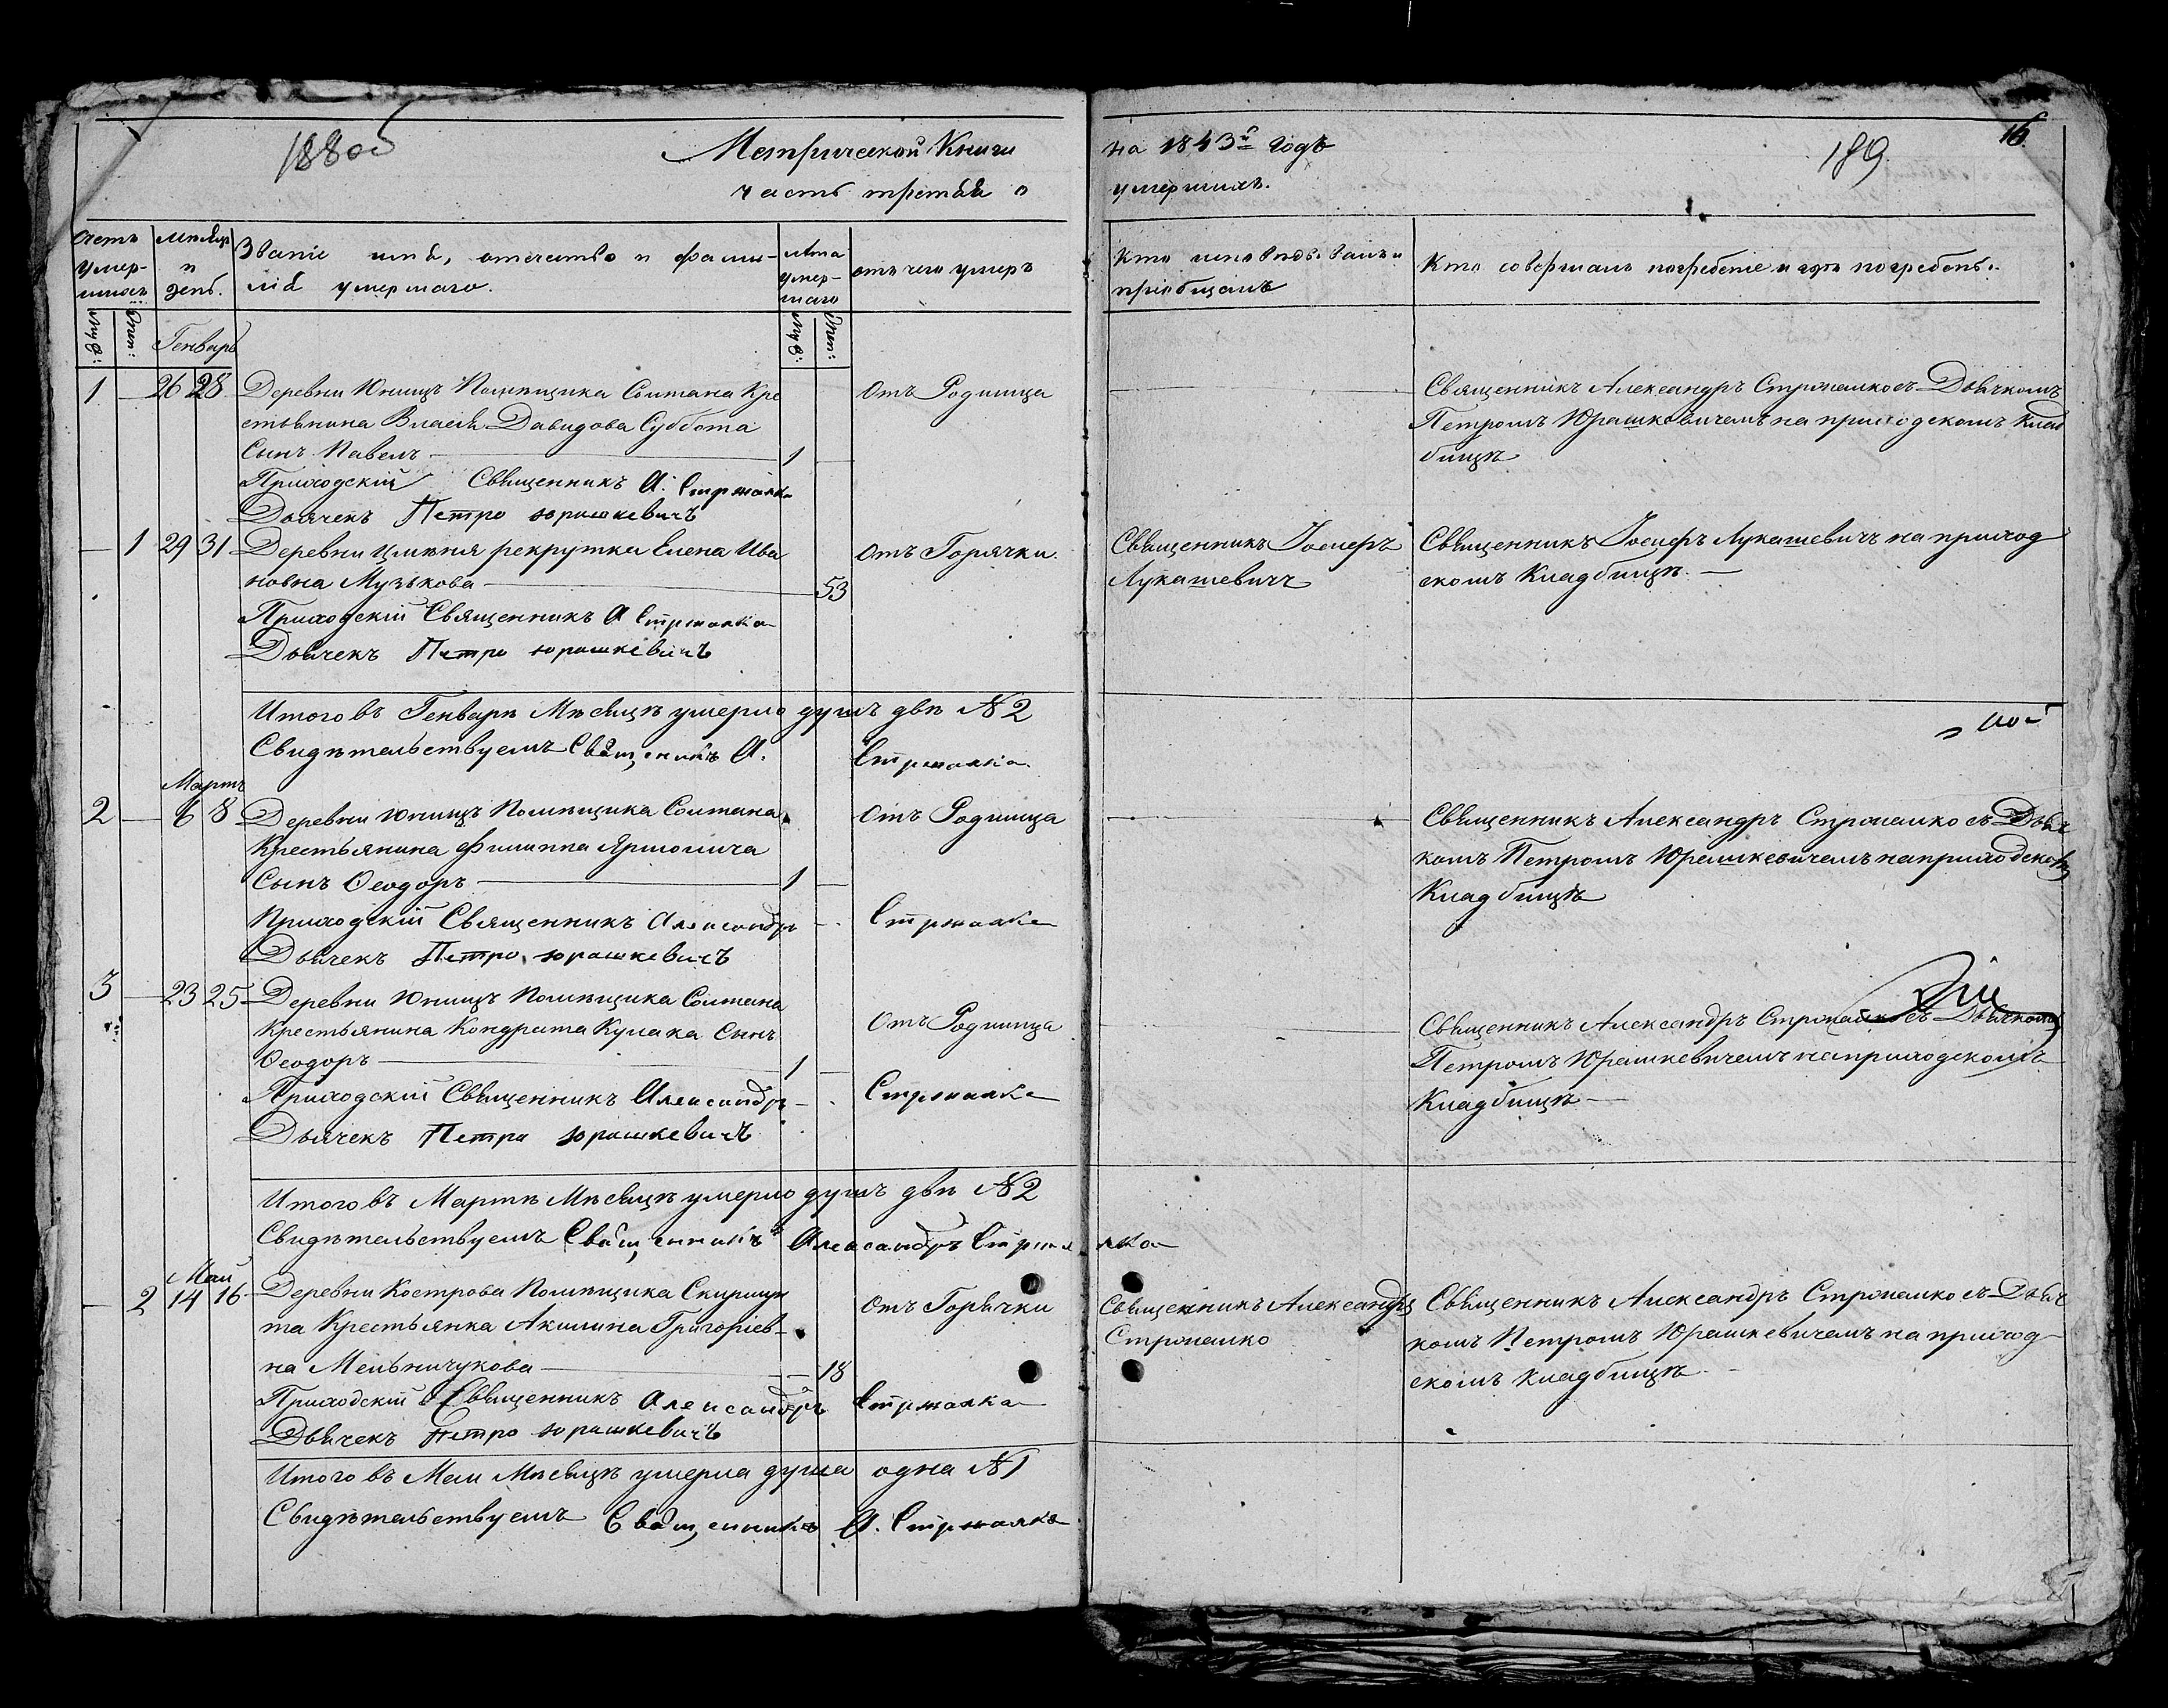 188об
Метрической Книги
часть третья о
на 1843й годъ
умершихъ.
189
16
Счетъ умер-шихъ
Мѣсяцъ и день.
Званіе имя, отчество и фами-
лія умершаго.
Лѣта умер-шаго
отъ чего умеръ
Кто исповѣдывалъ и
пріобщалъ
Кто совершалъ погребеніе и гдѣ погребенъ.
Муж: Жен:
Муж: Жен:
Генварь
1 — 26 28 Деревни Юнищъ Помѣщика Солтана Кре
стьянина Власія Давидова Суббота
Сынъ Павелъ — 1 —
отъ Родимца
Священникъ Александръ Стромалко съ Дьячкомъ
Петромъ Юрашкевичемъ на приходскомъ Клад
бищѣ
Приходскій Священникъ А. Стрмалко
Дьячекъ Петро Юрашкевичъ
— 1 29 31 Деревни рекрутка Елена Ива
новна Музыкова — 53
отъ Горячки.
Священникъ Іосифъ
Лукашевичъ
Священникъ Іосифъ Лукашевичъ на приход
скомъ Кладбищѣ. —
Приходскій Священникъ А
Дьячекъ Петро Юрашкевичъ
Итого въ Генварѣ Мѣсяцѣ умерло душъ двѣ №2
Свидѣтельствуемъ Священникъ А.
Мартъ
2 — 6 8 Деревни Юнищъ Помѣщика Солтана
Крестьянина Филиппа Ярмолича
Сынъ Ѳеодоръ — 1 —
отъ Родимца
Священникъ Александръ Стромалко съ Дьяч
комъ Петромъ Юрашкевичемъ на приходском
Кладбищѣ
Приходскій Священникъ Александръ
Дьячекъ Петро Юрашкевичъ
3 — 23 25 Деревни Юнищъ Помѣщика Солтана
Крестьянина Кондрата Кулака Сынъ
Ѳеодоръ — 1 —
отъ Родимца
Священникъ Александръ Стромалко съ Дьячкомъ
Петромъ Юрашкевичемъ на приходскомъ
Кладбищѣ —
Приходскій Священникъ Александръ
Дьячекъ Петро Юрашкевичъ
Итого въ Мартѣ Мѣсяцѣ умерло душъ двѣ №2
Свидѣтельствуемъ Священникъ Александръ
Май
— 2 14 16 Деревни Кострова Помѣщика Скирмун
та Крестьянка Акилина Григоріев-
на Мельничукова — 18
отъ Горячки
Священникъ Александръ
Стромалко
Священникъ Александръ Стромалко съ Дьяч
комъ Петромъ Юрашкевичемъ на приход
скомъ кладбищѣ
Приходскій Священникъ Александръ
Дьячекъ Петро Юрашкевичъ
Итого въ Маи Мѣсяцѣ умерла душа одна №1
Свидѣтельствуемъ Священникъ А.